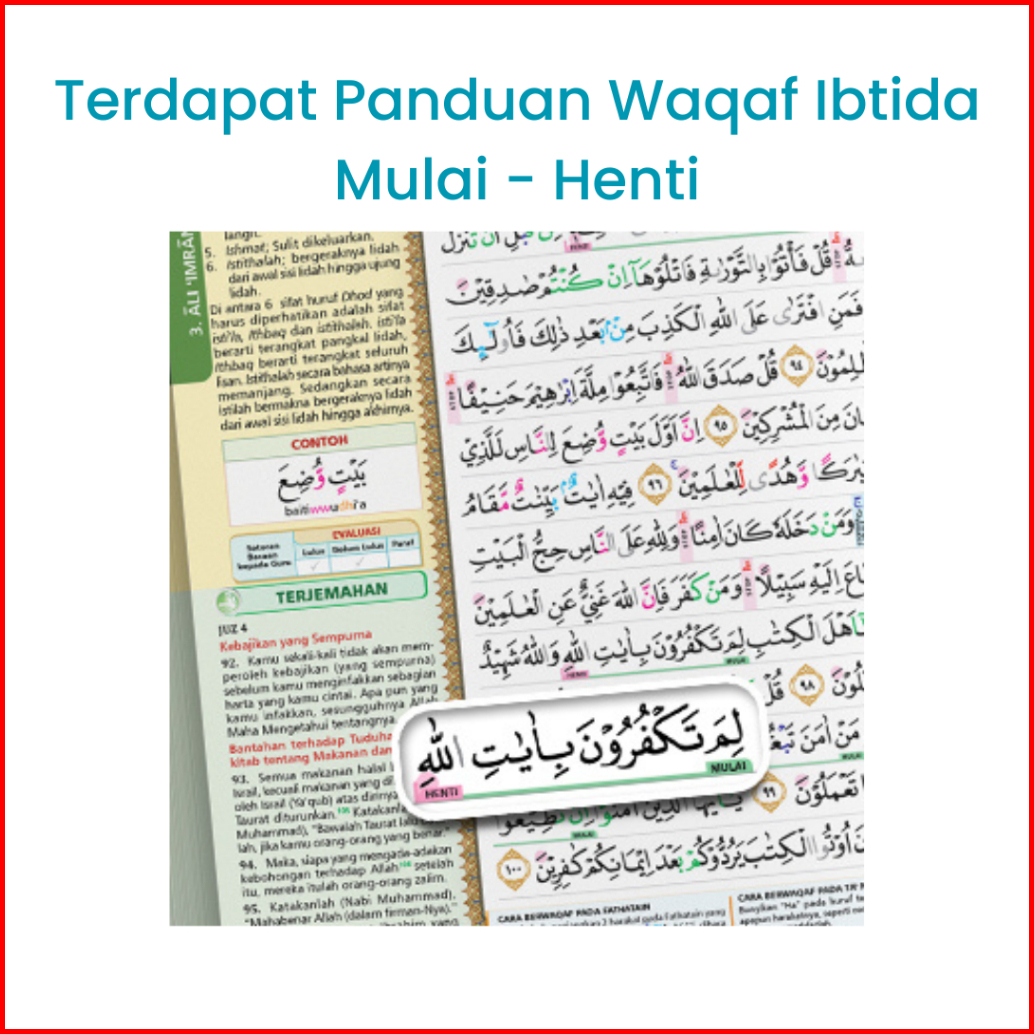 Terdapat Panduan Waqaf Ibtida
Mulai - Henti
3. ĀLI 'IMRĀN
langit.
5. Ishmat; Sulit dikeluarkan.
6. Istithalah; bergeraknya lidah
dari awal sisi lidah hingga ujung
lidah.
Di antara 6 sifat huruf Dhod yang
harus diperhatikan adalah sifat
isti'la, ithbaq dan istithalah. Isti'la
berarti terangkat pangkal lidah,
Ithbaq berarti terangkat seluruh
lisan. Istithalah secara bahasa artinya
memanjang. Sedangkan secara
istilah bermakna bergeraknya lidah
dari awal sisi lidah hingga akhirnya.
CONTOH
بَيْتٍ وُّضِعَ
baitiwwudhi'a
EVALUASI
Setoran
Bacaan
kepada Guru
Lulus Belum Lulus Paraf
TERJEMAHAN
JUZ 4
Kebajikan yang Sempurna
92. Kamu sekali-kali tidak akan mem-
peroleh kebajikan (yang sempurna)
sebelum kamu menginfakkan sebagian
harta yang kamu cintai. Apa pun yang
kamu infakkan, sesungguhnya Allah
Maha Mengetahui tentangnya.
Bantahan terhadap Tuduha
kitab tentang Makanan dan
93. Semua makanan halal
Israil, kecuali makanan yang di
oleh Israil (Ya'qub) atas dirinya
Taurat diturunkan. Katakanla
Muhammad), "Bawalah Taurat lalu
lah, jika kamu orang-orang yang benar."
94. Maka, siapa yang mengada-adakan
kebohongan terhadap Allah setelah
itu, mereka itulah orang-orang zalim.
95. Katakanlah (Nabi Muhammad),
"Mahabenar Allah (dalam firman-Nya)."
قُلْ فَأْتُوْا بِالتَّوْرٰىةِ فَاتْلُوْهَآ اِنْ كُنْتُمْ صٰدِقِيْنَ
فَمَنِ افْتَرٰى عَلَى اللّٰهِ الْكَذِبَ مِنْۢ بَعْدِ ذٰلِكَ فَاُولٰۤىِٕكَ
٩٤ قُلْ صَدَقَ اللّٰهُ فَاتَّبِعُوْا مِلَّةَ اِبْرٰهِيْمَ حَنِيْفًا
مِنَ الْمُشْرِكِيْنَ ٩٥ اِنَّ اَوَّلَ بَيْتٍ وُّضِعَ لِلنَّاسِ لَلَّذِيْ
وَّهُدًى لِّلْعٰلَمِيْنَ ٩٦ فِيْهِ اٰيٰتٌۢ بَيِّنٰتٌ مَّقَامُ
وَمَنْ دَخَلَهٗ كَانَ اٰمِنًا وَلِلّٰهِ عَلَى النَّاسِ حِجُّ الْبَيْتِ
اِلَيْهِ سَبِيْلًا وَمَنْ كَفَرَ فَاِنَّ اللّٰهَ غَنِيٌّ عَنِ الْعٰلَمِيْنَ
الْكِتٰبِ لِمَ تَكْفُرُوْنَ بِاٰيٰتِ اللّٰهِ وَاللّٰهُ شَهِيْدٌ
٩٨ قُلْ
لِمَ تَكْفُرُوْنَ بِاٰيٰتِ اللّٰهِ
MULAI
HENTI
مَنْ اٰمَنَ
تَعْمَلُوْنَ ٩٩
الْكِتٰبَ يَرُدُّوْكُمْ بَعْدَ اِيْمَانِكُمْ كٰفِرِيْنَ ١٠٠
CARA BERWAQAF PADA FATHATAIN
CARA BERWAQAF PADA TA'